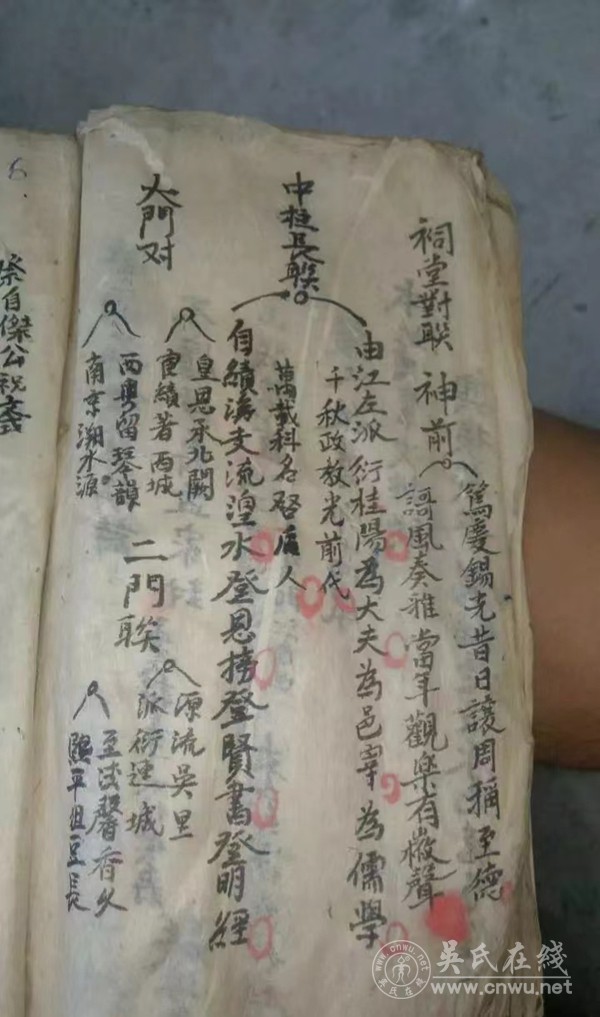 祠堂對联 神前
篤慶錫光昔日讓周稱至德
謌風奏雅當年觀樂有微聲
中柱長联
由江左派衍桂陽為大夫為邑宰為儒學
千秋政教光前代
萬載科名啓後人
自績溪支流湟水登恩榜登賢書登明經
大門对
皇恩承北闕
惠績著西城
西粤留琴韻
南京溯水源
二門联
源流吳里
派衍連城
至德馨香久
熙平俎豆長
祭自傑公祝文
吳氏在线
www.cnwu.net